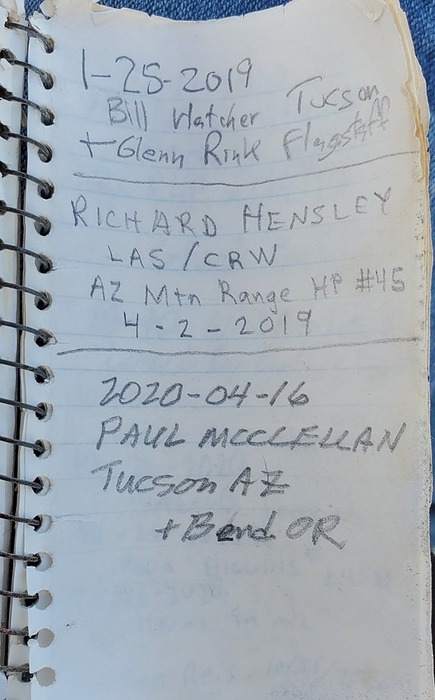 1-25-2019
Bill Hatcher Tucson
+ Glenn Rink Flagstaff
RICHARD HENSLEY
LAS/CRW
AZ Mtn Range HP #45
4-2-2019
2020-04-16
PAUL MCCLELLAN
Tucson AZ
+ Bend OR